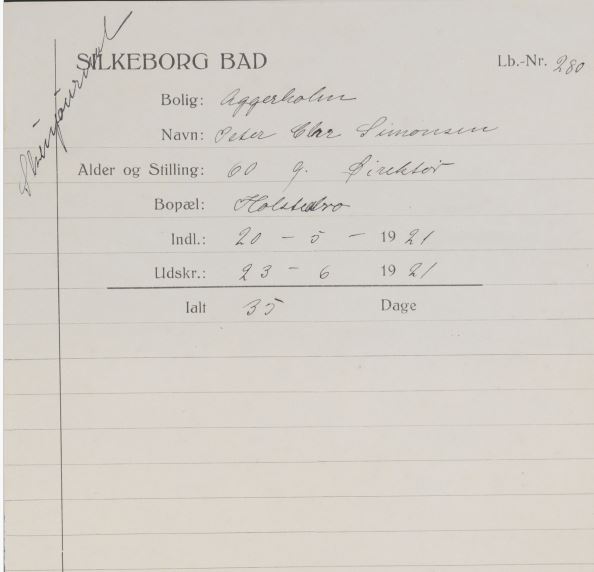 SILKEBORG BAD
Lb.-Nr. 280
Bolig: Aggerholm
Navn: Peter Chr Simonsen
Alder og Stilling: 60 g. Direktør
Bopæl: Holstebro
Indl.: 20 - 5 - 1921
Udskr.: 23 - 6 1921
Ialt 35 Dage